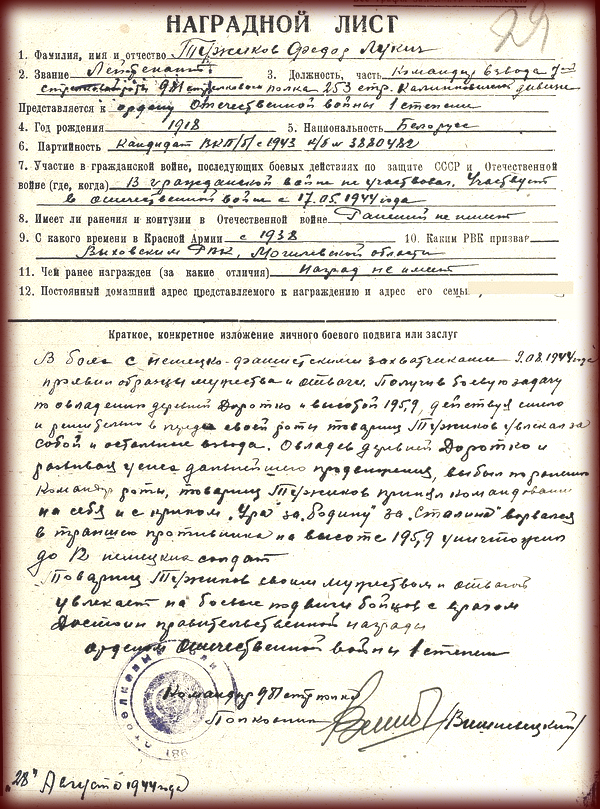 29
НАГРАДНОЙ ЛИСТ
1. Фамилия, имя и отчество Тужиков Федор Лукич
2. Звание Лейтенант 3. Должность, часть Командир взвода 7-ой
стрелковой роты 981 стрелкового полка 253 стр. Калинковичской дивизии
Представляется к ордену Отечественной войны 1 степени
4. Год рождения 1918 5. Национальность Белорусс
6. Партийность Кандидат ВКП/б/ с 1943 к/б № 3880482
7. Участие в гражданской войне, последующих боевых действиях по защите СССР и Отечественной
войне (где, когда) В гражданской войне не участвовал. Участвует
в отечественной войне с 17.05.1944 года
8. Имеет ли ранения и контузии в Отечественной войне Ранений не имеет
9. С какого времени в Красной Армии с 1938 10. Каким РВК призван
Быховским РВК, Могилевской области
11. Чем ранее награжден (за какие отличия) Наград не имеет
12. Постоянный домашний адрес представляемого к награждению и адрес его семьи
Краткое, конкретное изложение личного боевого подвига или заслуг
В боях с немецко-фашистскими захватчиками 9.08.1944 года
проявил образцы мужества и отваги. Получив боевую задачу
по овладению деревней Доротко и высотой 195,9, действуя смело
и решительно в переди своей роты товарищ Тужиков увлекал за
собой и остальные взвода. Овладев деревней Доротко и
развивая успех дальнейшего продвижения, выбыл по ранению
Командир роты, товарищ Тужиков принял командование
на себя и с криком „Ура" за „Родину" за „Сталина" ворвался
в траншею противника на высоте 195,9 уничтожено
до 12 немецких солдат
Товарищ Тужиков своим мужеством и отвагой
увлекает на боевые подвиги бойцов с врагом
Достоин правительственной награды
орденом Отечественной войны 1 степени
Командир 981 стр полка
Полковник /Вишневецкий/
„28" Августа 1944 года